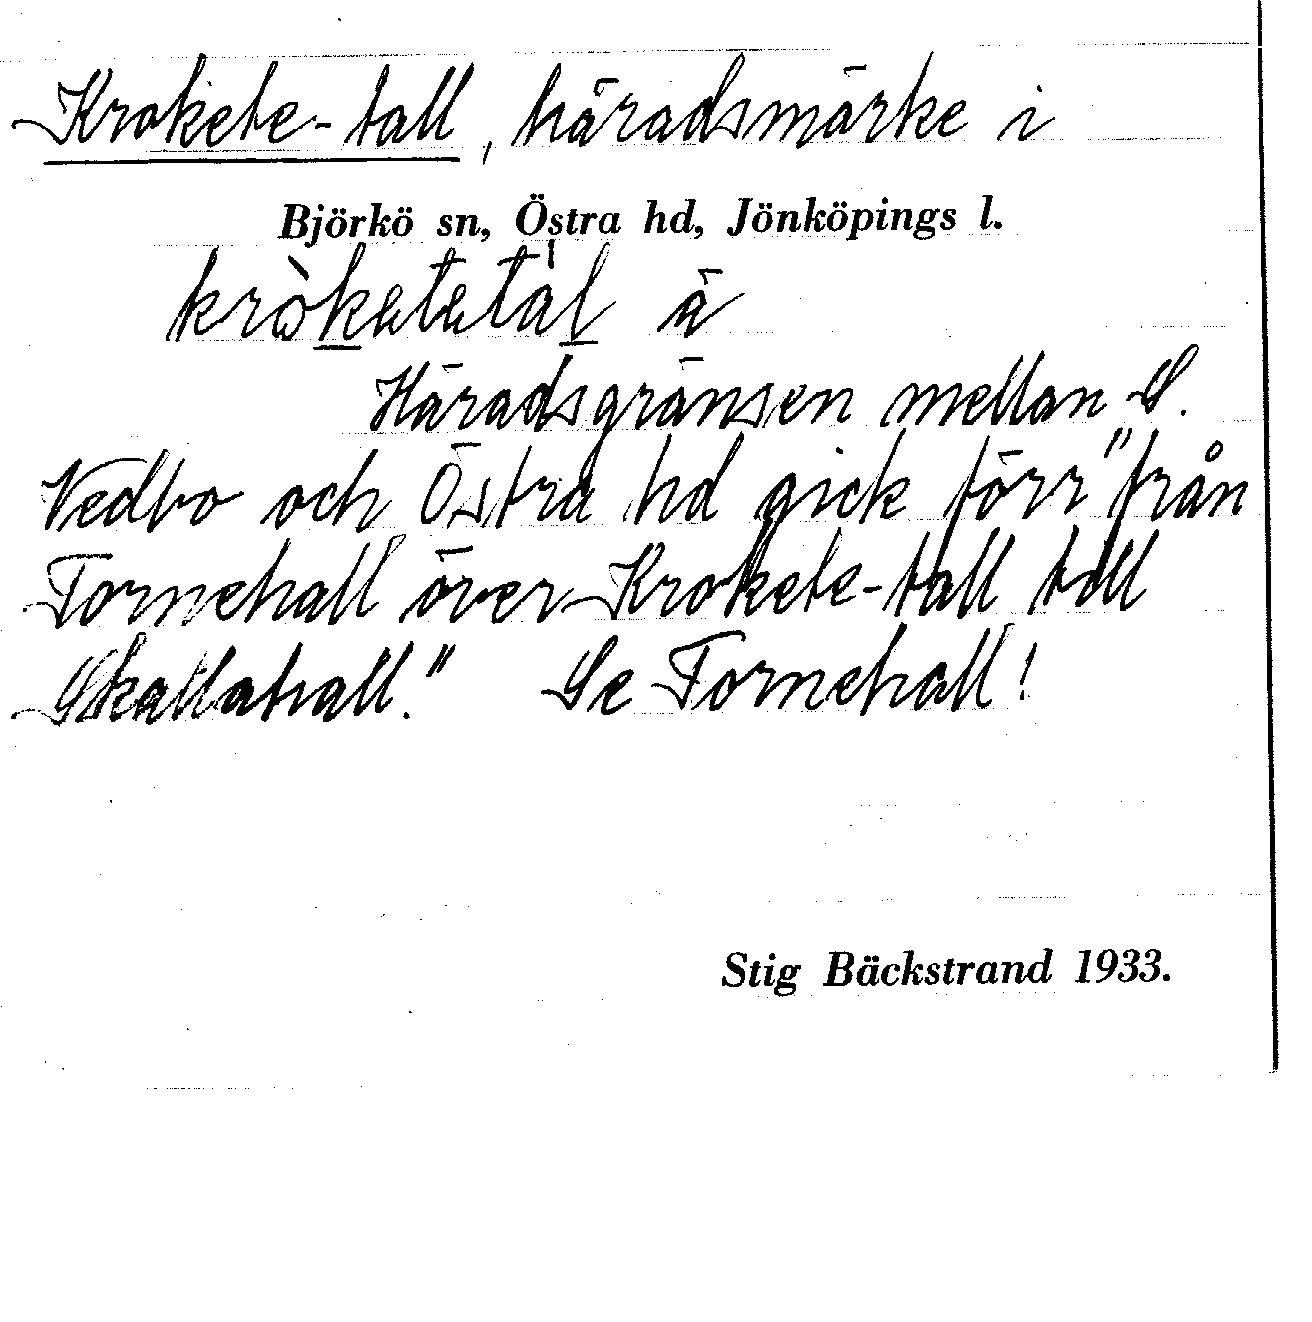 Krokete-tall, häradsmärke i
Björkö sn, Östra hd, Jönköpings l.
ä
Häradsgränsen mellan S.
Vedbo och Östra hd gick förr "från
Tornehall över Krokete-tall till
Skallahall." Se Tornehall!
Stig Bäckstrand 1933.